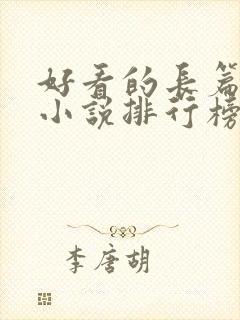 好看的长篇
小说排行榜
李唐胡